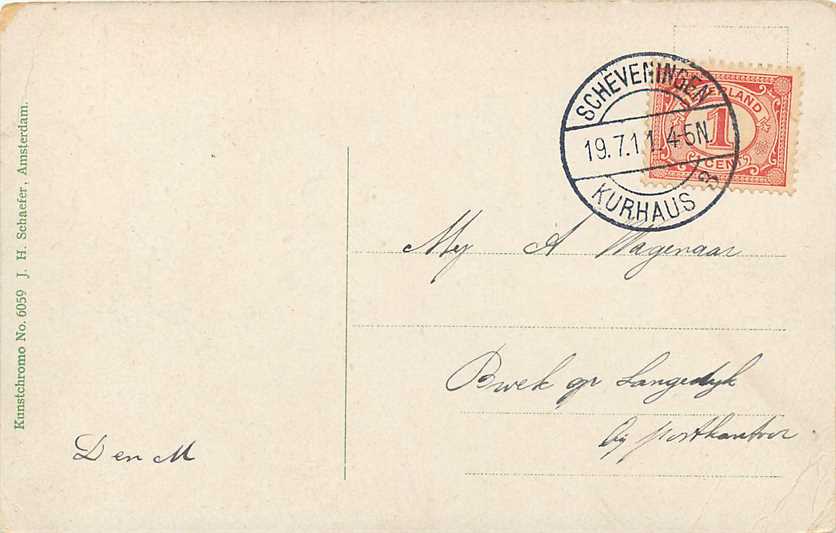 SCHEVENINGEN
19.7.11. 4-5N
KURHAUS
1
CENT
Kunstchromo No. 6059 J. H. Schaefer, Amsterdam.
Mej A Wagenaar
Broek op Langedyk
bij postkantoor
D en M